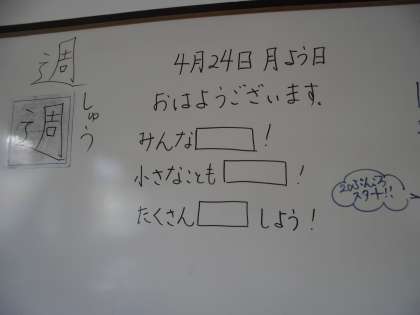 週
週
しゅう
4月24日 月よう日
おはようございます。
みんな!
小さなことも!
たくさんしよう!
20ぷんごろ
スタート!!